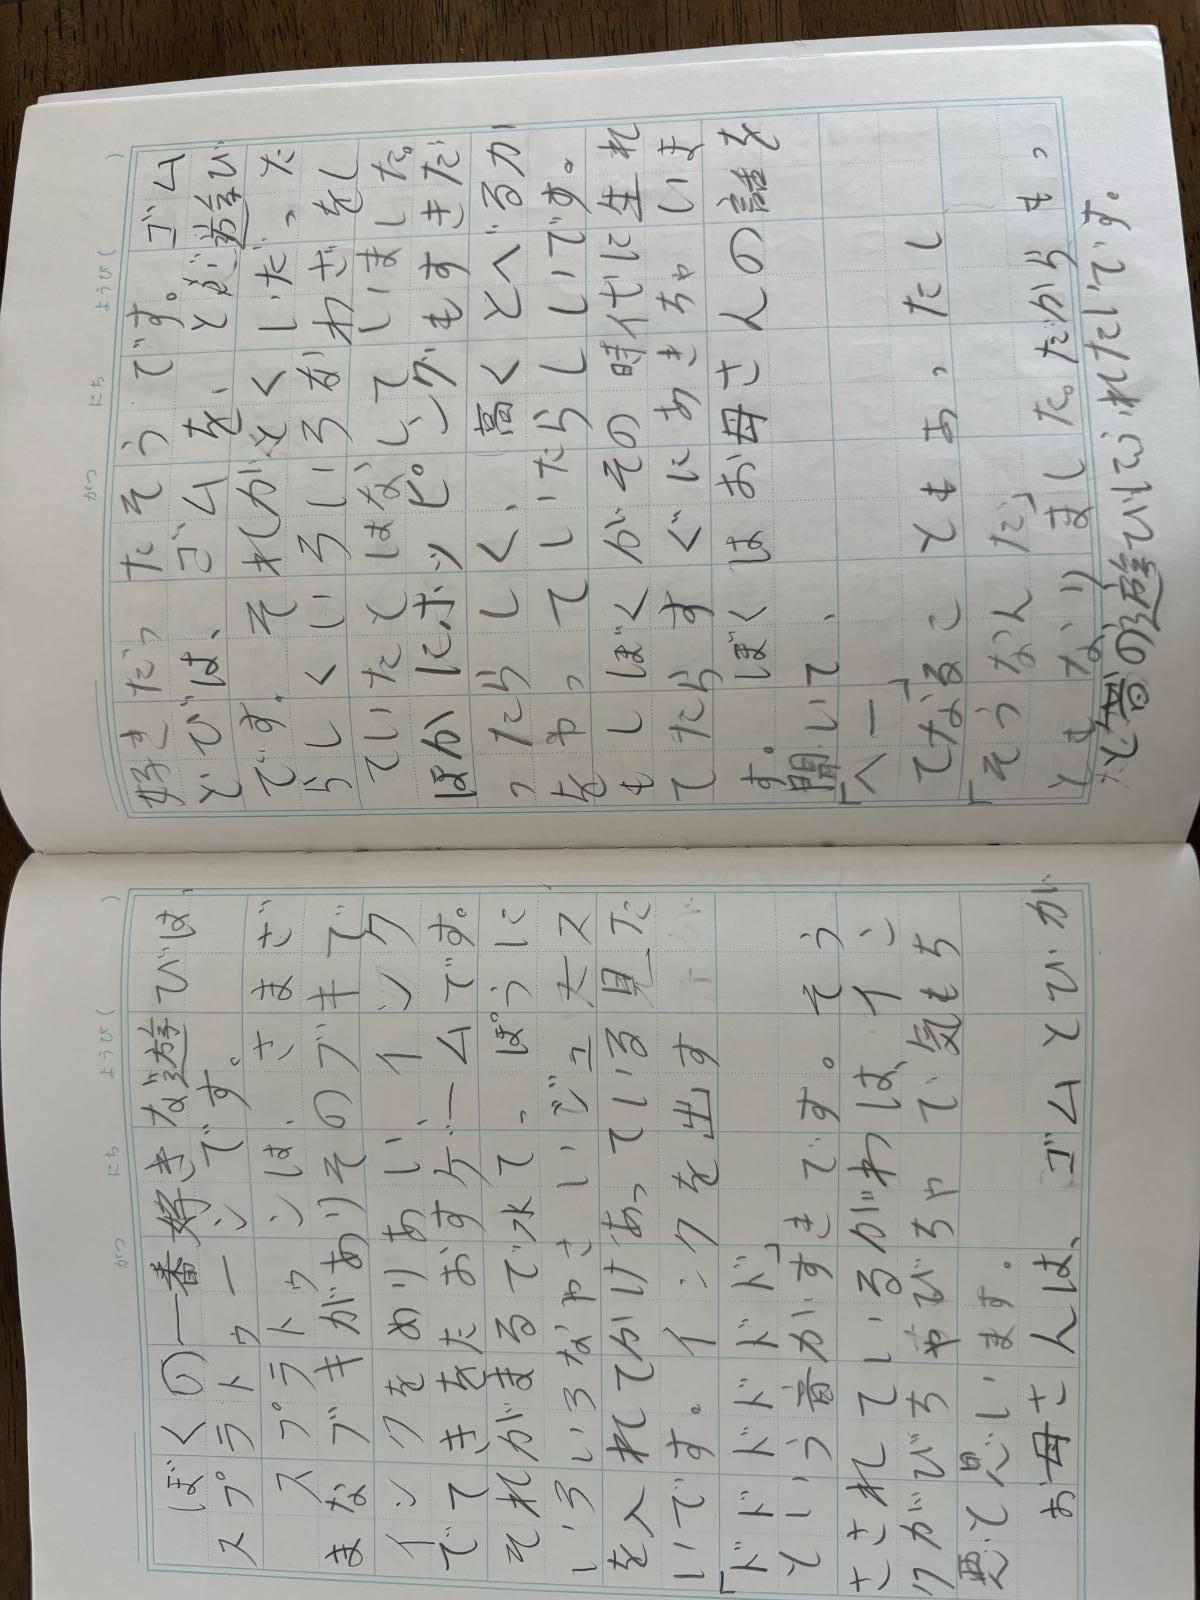 がつ　にち　ようび(　)
ぼくの一番好きな遊びは、
スプラトゥーンです。
スプラトゥンは、さまざ
まなブキがありそのブキで
インクをめりあい、インク
でてきをたおすゲームです。
それがまるで水てっぽうに
いろいろなやさいジュース
を入れてかけあっている見た
いです。インクを出す
「ドドドドドド」
という音がすきです。そう
さされているがわは、イン
クがびちゃびちゃで気もち
悪いと思います。
お母さんは、ゴムとびが
がつ　にち　ようび(　)
好きだったそうです。ゴム
とびは、ゴムを、とぶ遊び
です。それがとくいだった
らしくいろいろなわざをし
ていたとはなしていました。
ほかにホッピングもすきだ
ったらしく、高くとべるか
をやっていたらしいです。
もしぼくがその時代に生れ
てたらすぐにあきちゃいま
す。ぼくはお母さんの話を
聞いて、
「へー」
てなることもあったし
「そうなんだ」
ともなりました。だからもっ
と昔の遊びにふれたいです。